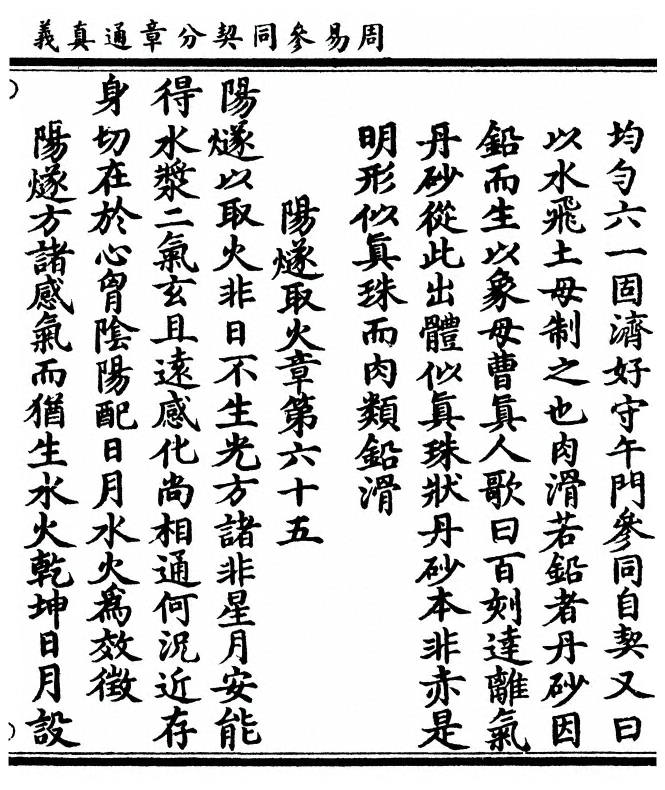 周易參同契分章通真義
均勻六一固濟好守午門參同自契又曰
以水飛土母制之也肉滑若鉛者丹砂因
鉛而生以象母曹眞人歌曰百刻達離氣
丹砂從此出體似眞珠狀丹砂本非赤是
明形似眞珠而肉類鉛滑
陽燧取火章第六十五
陽燧以取火非日不生光方諸非星月安能
得水漿二氣玄且遠感化尚相通何況近存
身切在於心胷陰陽配日月水火爲效徵
陽燧方諸感氣而猶生水火乾坤日月設